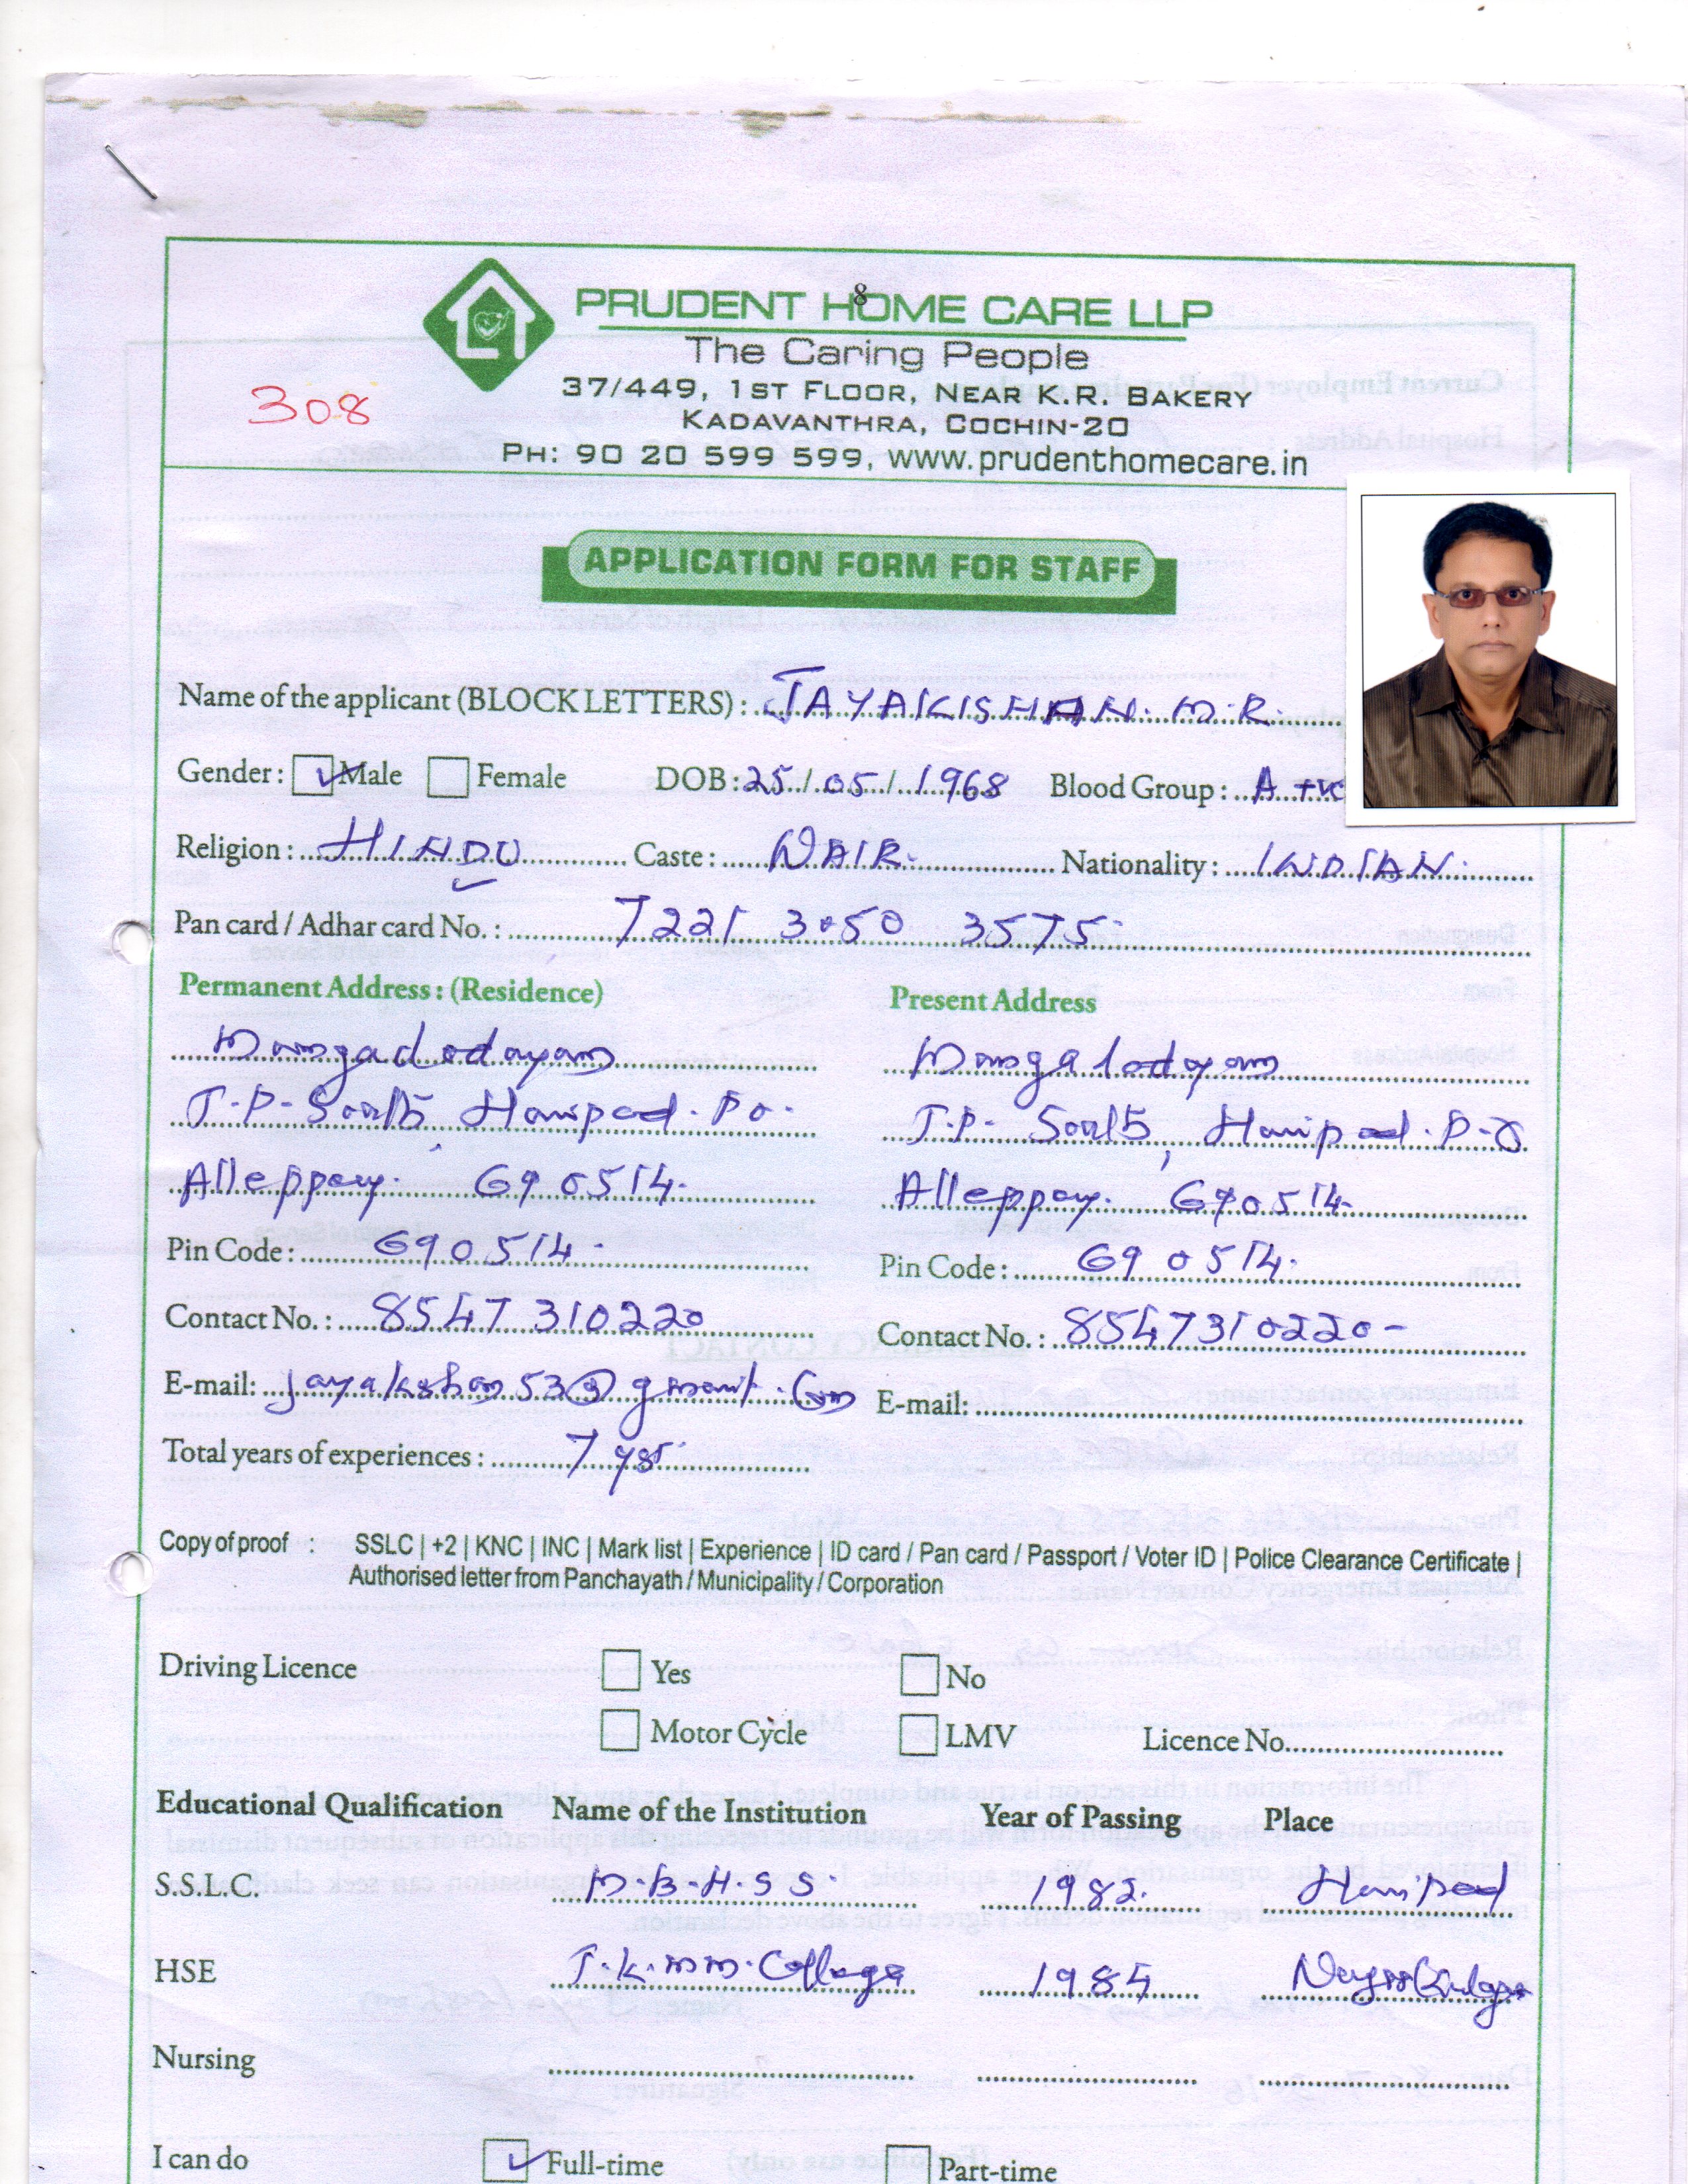 8
PRUDENT HOME CARE LLP
The Caring People
308
37/449, 1ST FLOOR, NEAR K.R. BAKERY
KADAVANTHRA, COCHIN-20
PH: 90 20 599 599, www.prudenthomecare.in
APPLICATION FORM FOR STAFF
Name of the applicant (BLOCK LETTERS) : JAYAKISHAN. M.R.
Gender : Male Female DOB : 25 / 05 / 1968 Blood Group : A +ve
Religion : HINDU Caste : NAIR. Nationality : INDIAN.
Pan card / Adhar card No. : 7221 3050 3575
Permanent Address : (Residence) Present Address
Mangalodayam Mangalodayam
T.P. South, Haripad. P.O. T.P. South, Haripad. P.O
Alleppey. 690514. Alleppey. 690514.
Pin Code : 690514. Pin Code : 690514.
Contact No. : 8547 310220 Contact No. : 8547310220-
E-mail: E-mail:
Total years of experiences : 7 yrs
Copy of proof : SSLC | +2 | KNC | INC | Mark list | Experience | ID card / Pan card / Passport / Voter ID | Police Clearance Certificate |
Authorised letter from Panchayath / Municipality / Corporation
Driving Licence Yes No
Motor Cycle LMV Licence No.
Educational Qualification Name of the Institution Year of Passing Place
S.S.L.C. M.B.H.S.S. 1982. Haripad
HSE T.K.M.M. College 1984
Nursing
I can do Full-time Part-time